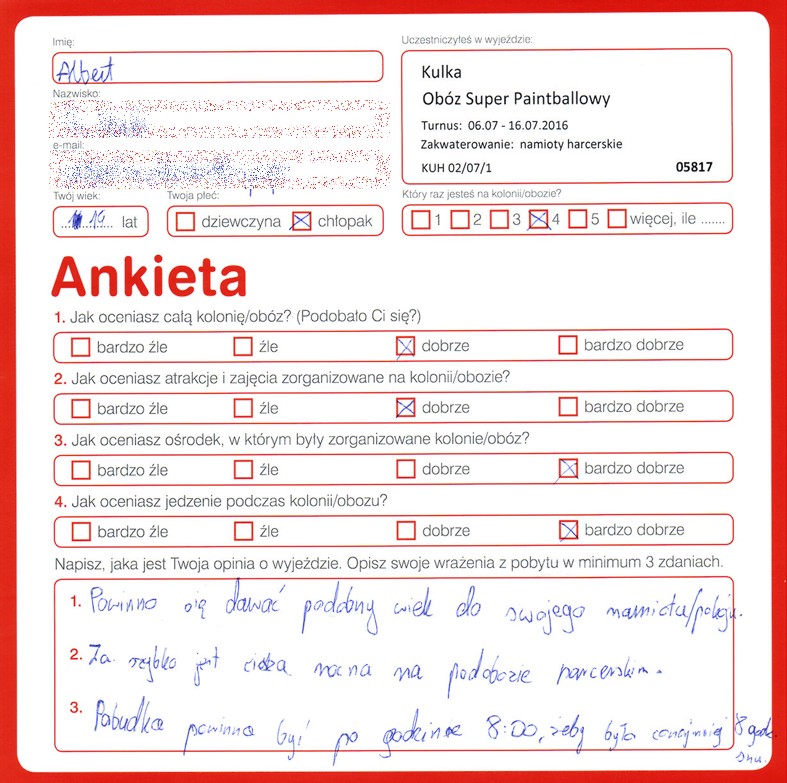 Imię:
Albert
Nazwisko:
e-mail:
Twój wiek:
19 lat
Twoja płeć:
dziewczyna chłopak
Uczestniczyłeś w wyjeździe:
Kulka
Obóz Super Paintballowy
Turnus: 06.07 - 16.07.2016
Zakwaterowanie: namioty harcerskie
KUH 02/07/1 05817
Który raz jesteś na kolonii/obozie?
1 2 3 4 5 więcej, ile .......
Ankieta
1. Jak oceniasz całą kolonię/obóz? (Podobało Ci się?)
bardzo źle źle dobrze bardzo dobrze
2. Jak oceniasz atrakcje i zajęcia zorganizowane na kolonii/obozie?
bardzo źle źle dobrze bardzo dobrze
3. Jak oceniasz ośrodek, w którym były zorganizowane kolonie/obóz?
bardzo źle źle dobrze bardzo dobrze
4. Jak oceniasz jedzenie podczas kolonii/obozu?
bardzo źle źle dobrze bardzo dobrze
Napisz, jaka jest Twoja opinia o wyjeździe. Opisz swoje wrażenia z pobytu w minimum 3 zdaniach.
1. Powinno się dawać podobny wiek do swojego namiotu/pokoju.
2. Za szybko jest cisza nocna na podobozie parcerskim.
3. Pobudka powinna być po godzinie 8:00, żeby było conajmniej 8 godz.
snu.